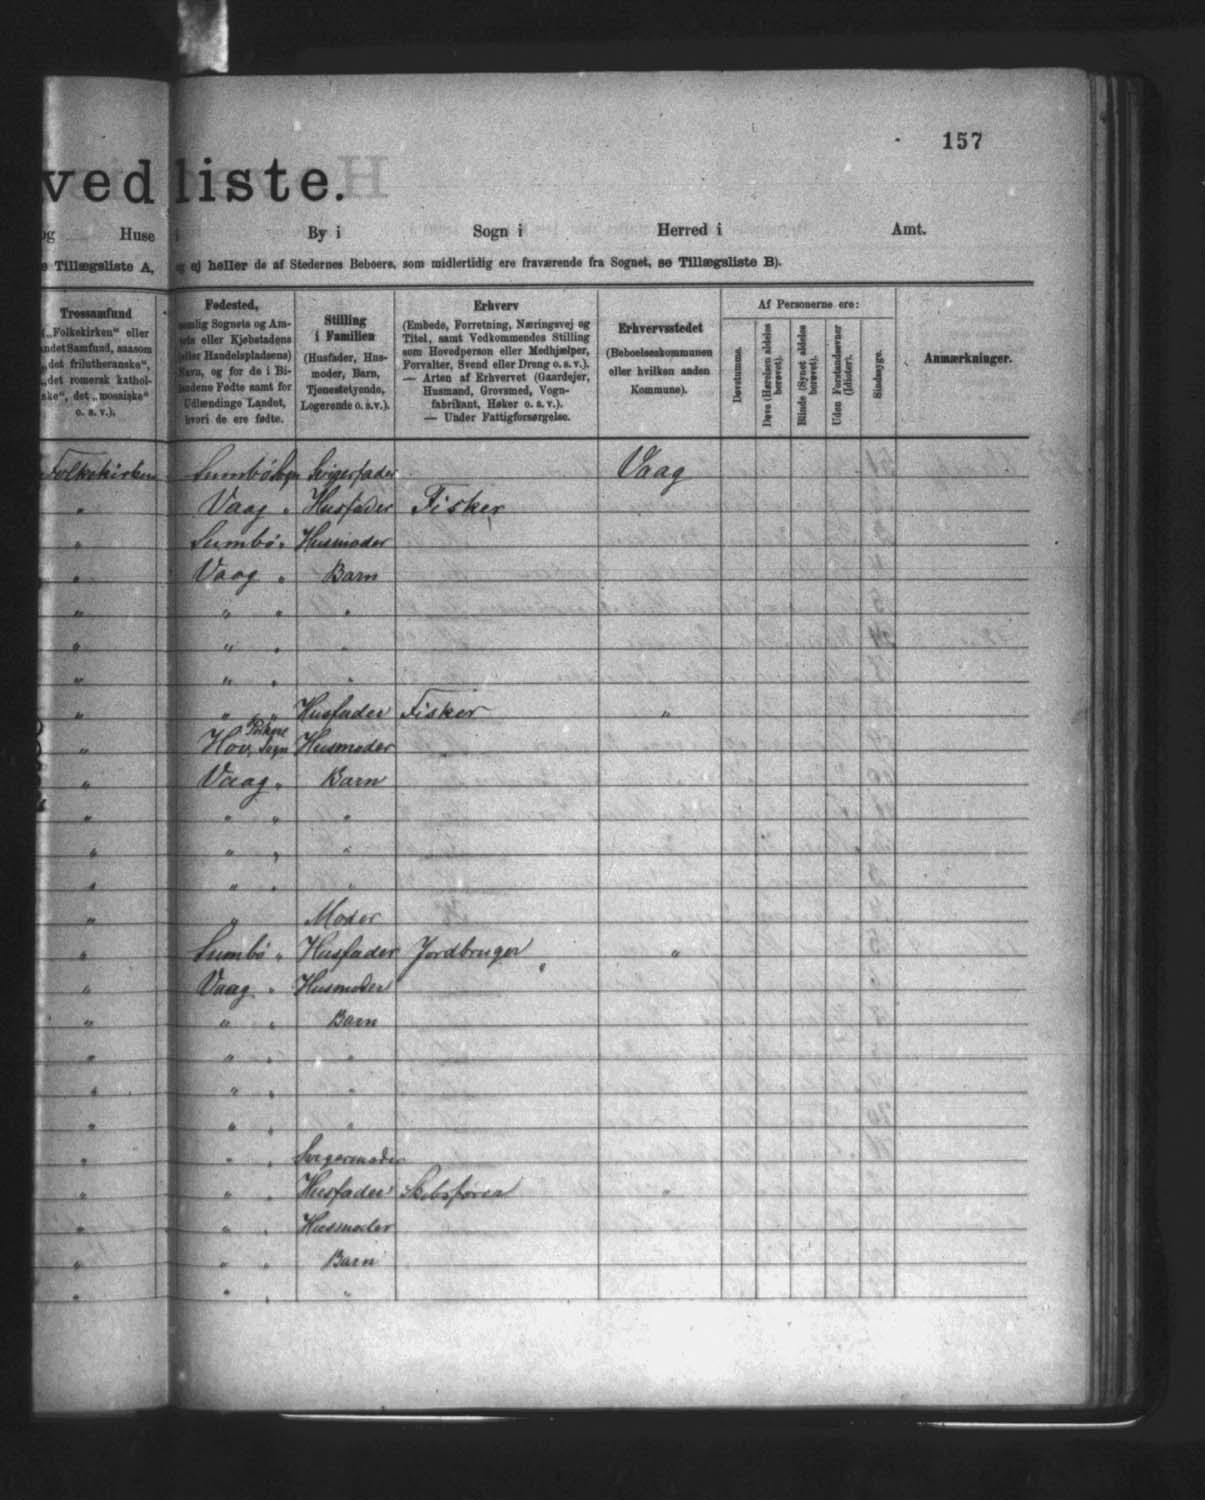 157
ved liste.
og Huse i By i Sogn i Herred i Amt.
e Tillægsliste A, og ej heller de af Stedernes Beboere, som midlertidig ere fraværende fra Sognet, se Tillægsliste B).
Trossamfund
(„Folkekirken“ eller
andet Samfund, saasom
„det frilutheranske“,
„det romersk kathol-
ske“, det „mosaiske“
o. s. v.).
Fødested,
nemlig Sognets og Am-
tets eller Kjøbstadens
(eller Handelspladsens)
Navn, og for de i Bi-
landene Fødte samt for
Udlændinge Landet,
hvori de ere fødte.
Stilling
i Familien
(Husfader, Hus-
moder, Barn,
Tjenestetyende,
Logerende o. s. v.).
Erhverv
(Embede, Forretning, Næringsvej og
Titel, samt Vedkommendes Stilling
som Hovedperson eller Medhjælper,
Forvalter, Svend eller Dreng o. s. v.).
— Arten af Erhvervet (Gaardejer,
Husmand, Grovsmed, Vogn-
fabrikant, Høker o. s. v.).
— Under Fattigforsørgelse.
Erhvervsstedet
(Beboelseskommunen
eller hvilken anden
Kommune).
Af Personerne ere:
Døvstumme.
Døve (Hørelsen aldeles
berøvet).
Blinde (Synet aldeles
berøvet).
Uden Forstandsevner
(Idioter).
Sindssyge.
Anmærkninger.
Folkekirken Sumbø Sogn Svigerfader Vaag
" Vaag " Husfader Fisker
" Sumbø " Husmoder
" Vaag " Barn
" " " "
" " "
" " " "
" " " Husfader Fisker "
" Hov, Sogn Husmoder
" Vaag " Barn
" " " "
" " " "
" " " "
" " Moder
" Sumbø " Husfader Jordbruger "
" Vaag " Husmoder
" " " Barn
" " " "
" " " "
" " " "
" " " Svigermoder
" " " Husfader Skibsfører "
" " " Husmoder
" " " Barn
" " " "